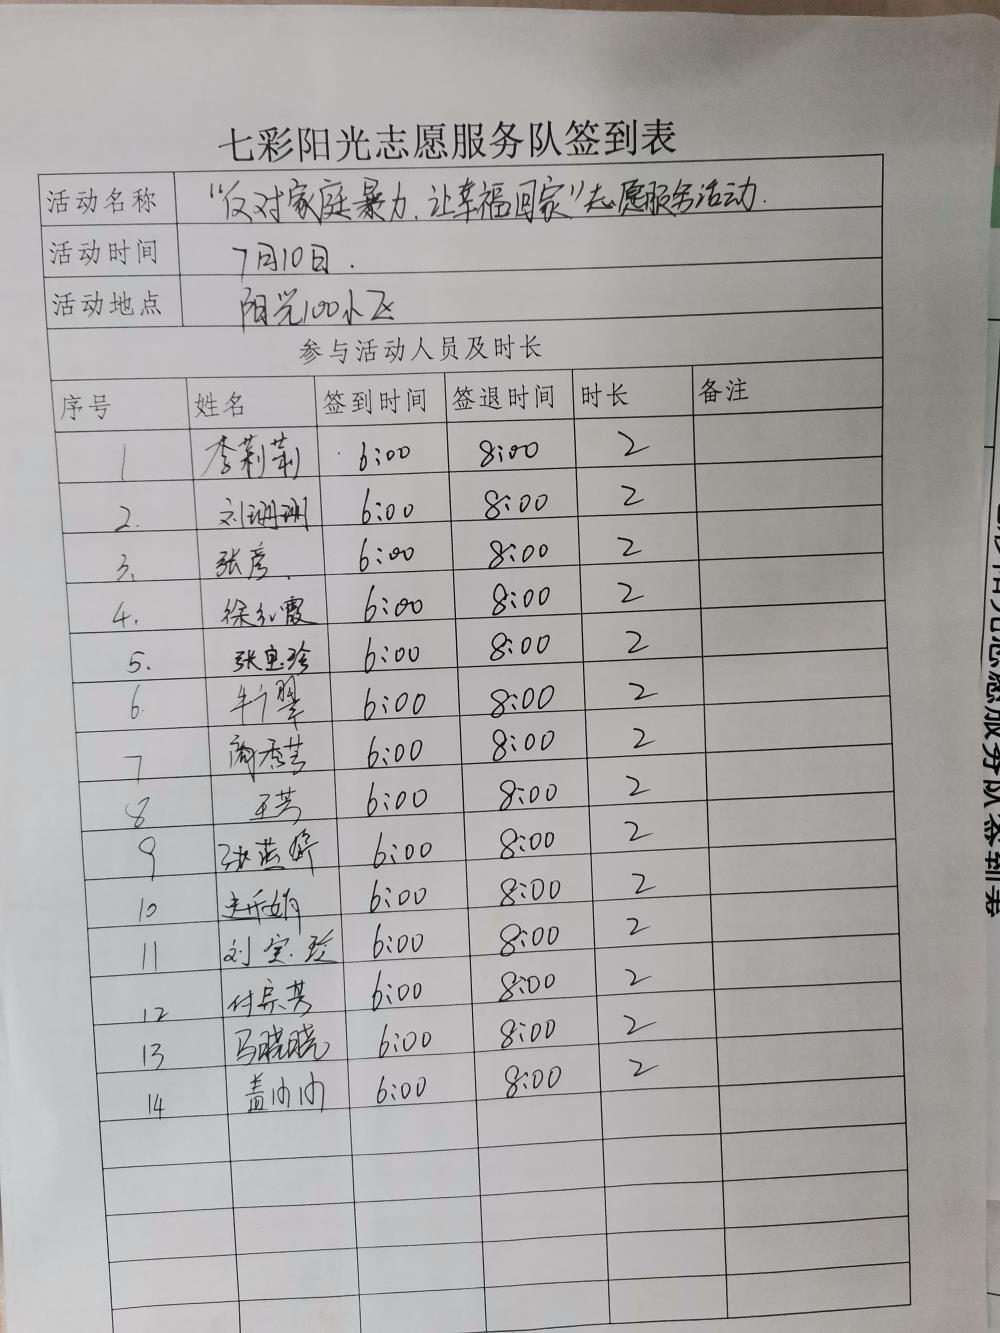 七彩阳光志愿服务队签到表
活动名称 "反对家庭暴力,让幸福回家"志愿服务活动.
活动时间 7月10日.
活动地点 阳光100小区
参与活动人员及时长
序号 姓名 签到时间 签退时间 时长 备注
1 李莉莉 6:00 8:00 2
2. 刘珊珊 6:00 8:00 2
3. 张彦. 6:00 8:00 2
4. 徐红霞 6:00 8:00 2
5. 张宝珍 6:00 8:00 2
6 牛翠 6:00 8:00 2
7 6:00 8:00 2
8 王芳 6:00 8:00 2
9 张燕 6:00 8:00 2
10 娟 6:00 8:00 2
11 刘宝珍 6:00 8:00 2
12 付 6:00 8:00 2
13 马晓晓 6:00 8:00 2
14 盖帅帅 6:00 8:00 2
七彩阳光志愿服务队签到表